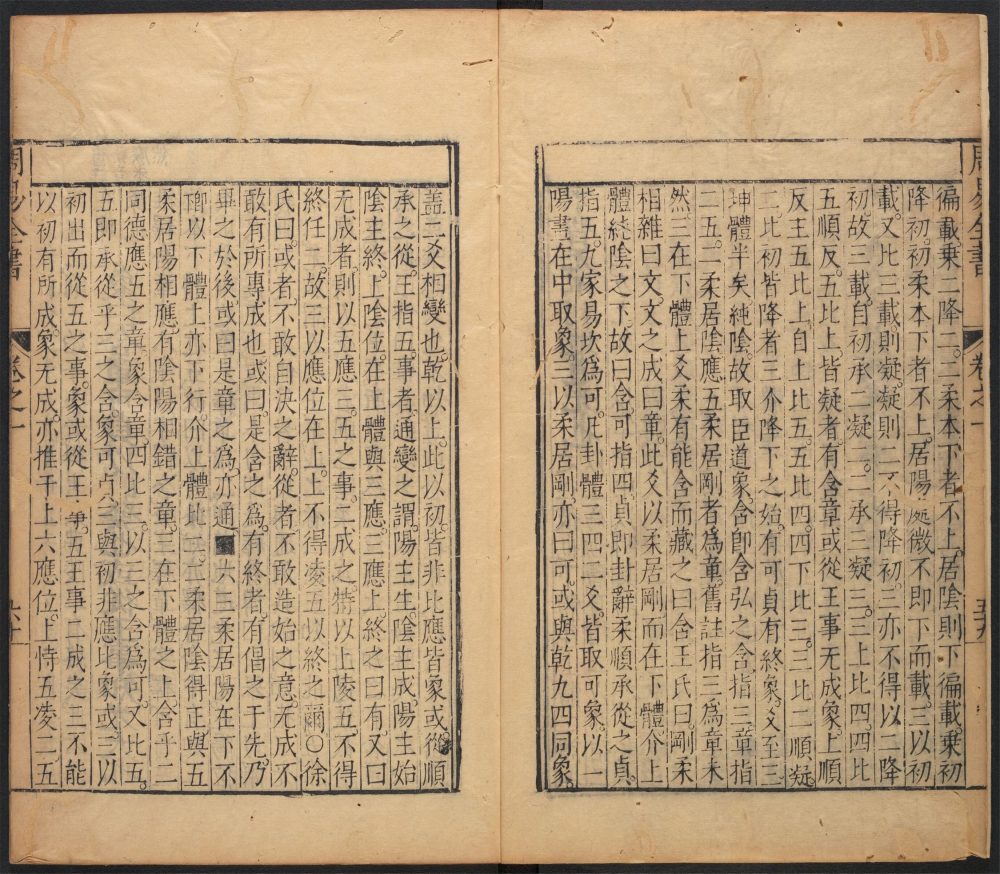 周易全書
徧載乗二降二。二柔本下者不上。居陰則下徧載乗初
降初。初柔本下者不上。居陽微不即下而載。三以初
載。又比三載則凝。凝則二不得降初。三亦不得以二降
初故三載。自初承二凝二。二承三凝三。三上比四四比
五順反。五比上皆凝者有含章或從王事无成象。上順
反王五比上自上比五。五比四。四下比三。三比二順凝。
二比初皆降者三介降下之始。有可貞有終象。爻至三
坤體半矣純陰。故取臣道象。含卽含弘之含指三。章指
二五。二柔居陰應五柔居剛者爲章。舊註指三爲章未
然。三在下體上爻柔有能含而藏之曰含王氏曰。剛柔
相雜曰文。文之成曰章。此爻以柔居剛而在下體介上
體純陰之下故曰含。可指四貞卽卦辭柔順承從之貞。
指五。九家易坎爲可。凡卦體三四二爻。皆取可象。以一
陽畫在中取象。三以柔居剛亦曰可。或與乾九四同象。
卷之一
五十九
盖二爻相變也。乾以上。此以初。皆非比應皆象或。從順
承之從。王指五。事者通變之謂。陽主生。陰主成。陽主始
陰主終。上陰位。在上體與三應。三應上終之曰有。又曰
无成者。則以五應三。五之事。二成之特以上陵五。不得
終任二。故三以應位在上。上不得凌五以終之爾〇徐
氏曰。或者。不敢自決之辭。從者不敢造始之意。无成不
敢有所專成也或曰。是含之爲。有終者有倡之于先。乃
畢之於後。或曰是章之爲亦通 六三柔居陽在下不
以下體上亦下行。介上體比二二柔居陰得正與五
柔居陽相應有陰陽相錯之章。三在下體之上含乎二
同德應五之章象含章。四比三。以三之含爲可。又比五。
五卽承從乎三之含象可貞三與初非應比象或。三以
初出而從五之事。象或從王事五王事二成之三不能
以初有所成。象无成亦推于上六應位。上恃五凌二五
周易全書
卷之一
六十